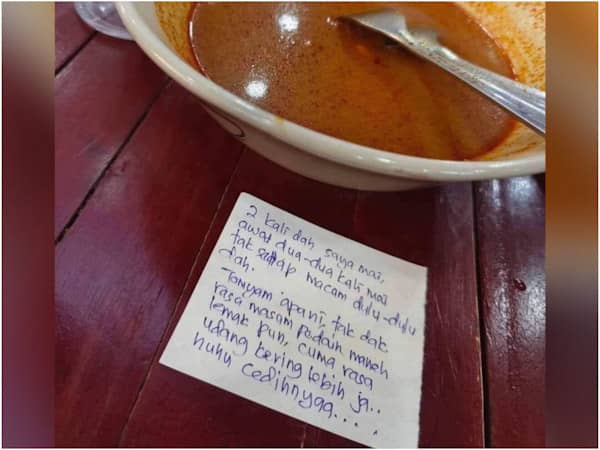 2 kali dah saya mai,
awat dua-dua kali mai
tak sedap macam dulu-dulu
dah.
Tomyam apa ni, tak dak
rasa masam padain maneh
lemak pun, cuma rasa
udang kering lebih ja..
huhu cedihnyaa....,